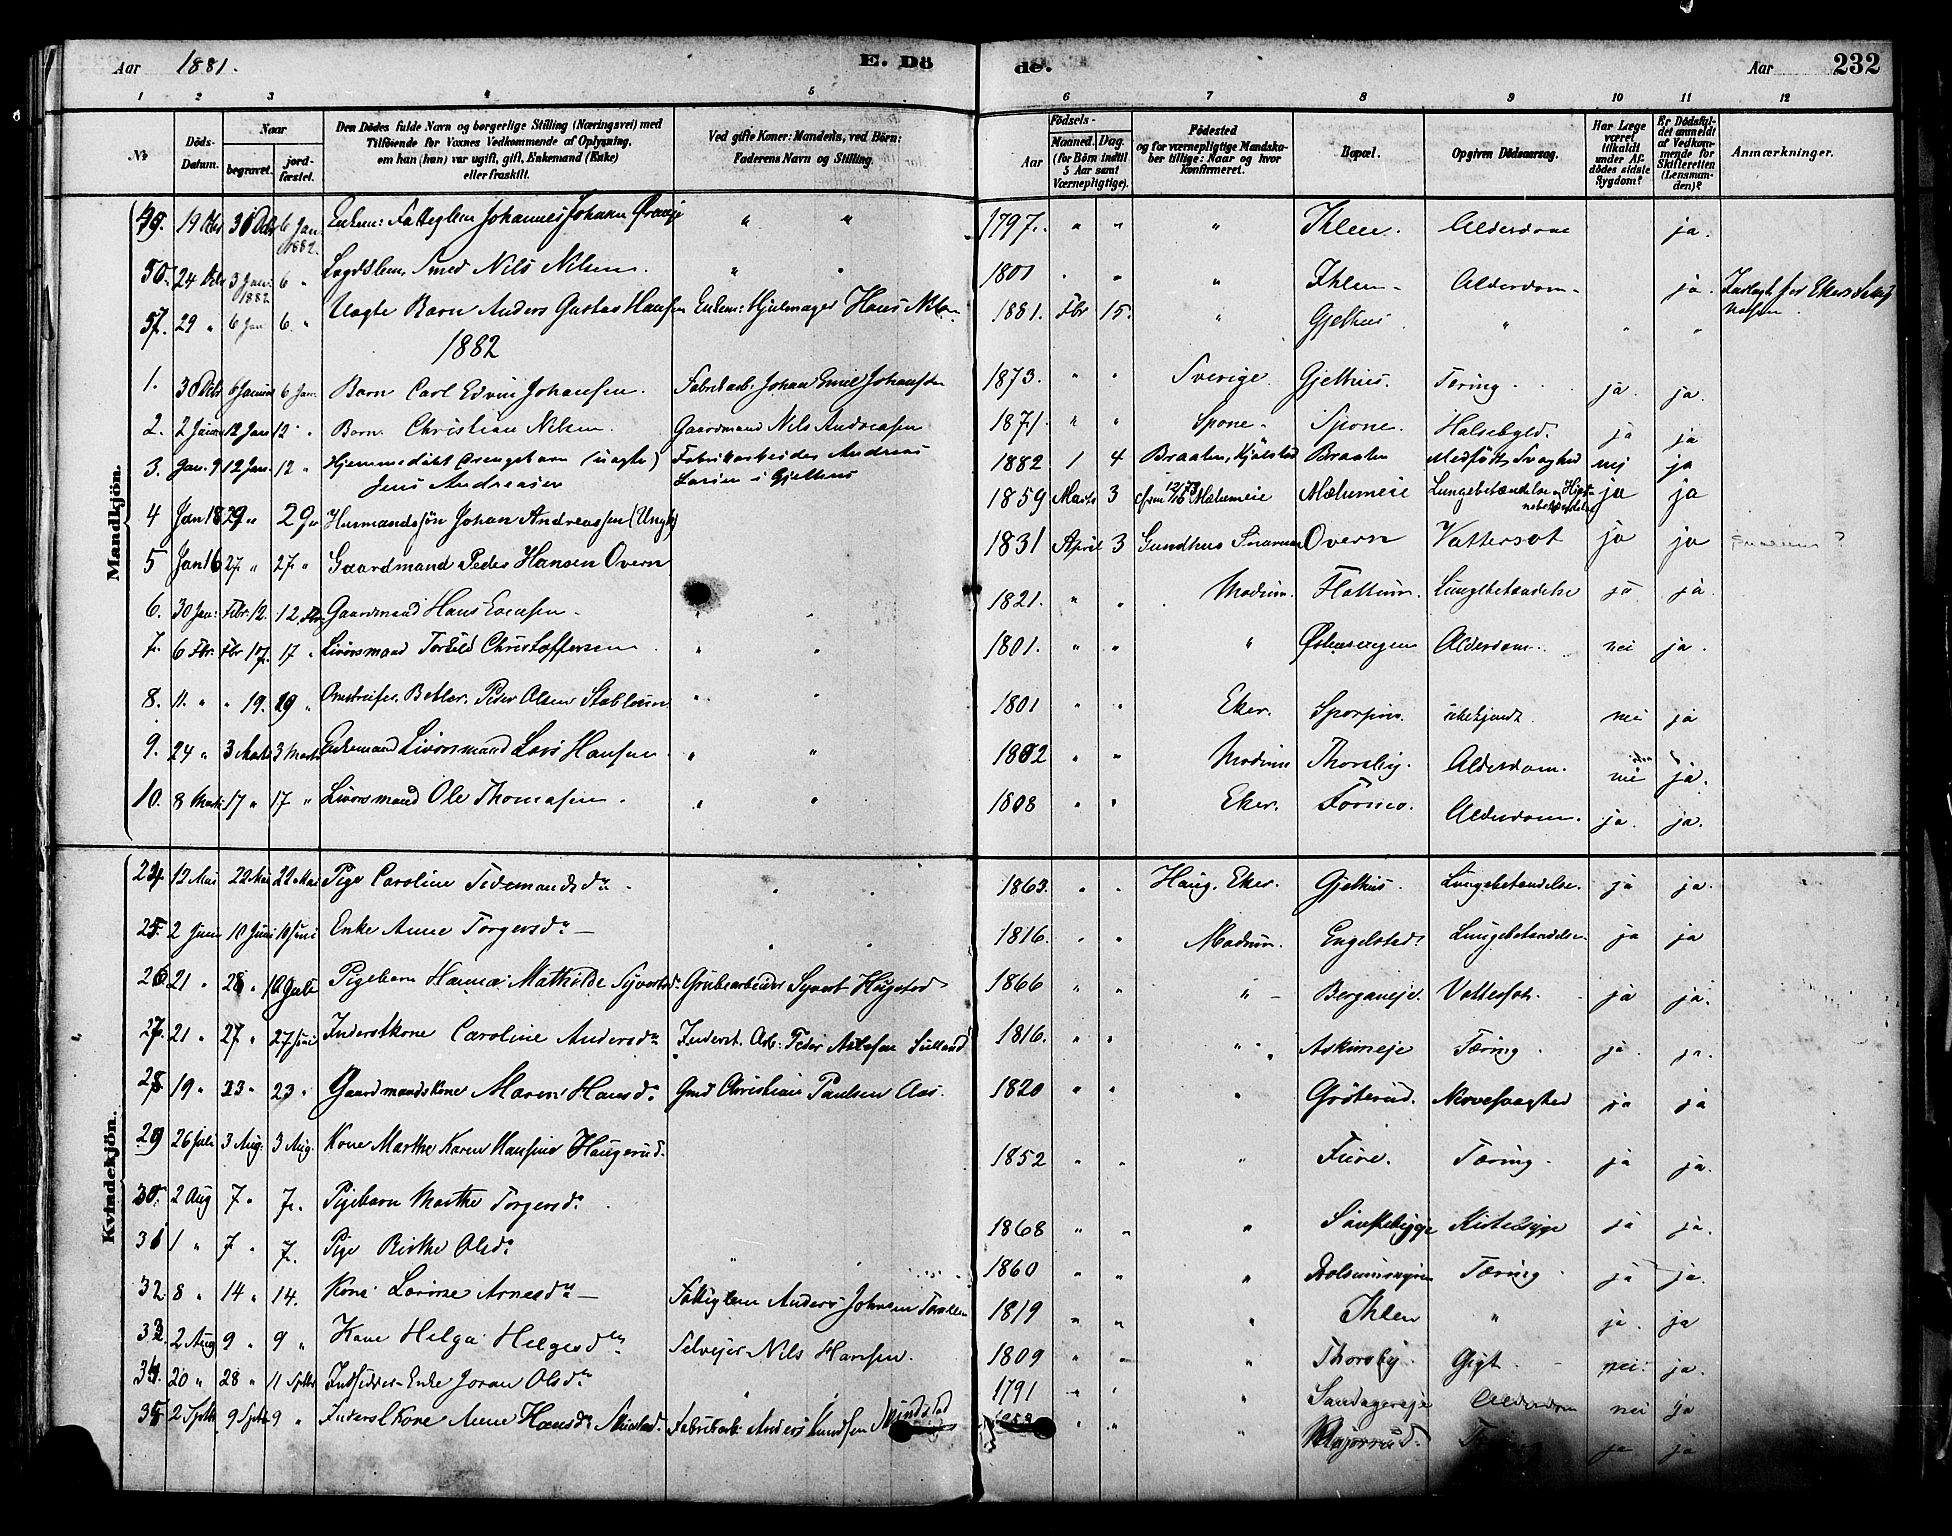 Aar 1881. E. Dö de. Aar 232
1 2 3 4 5 6 7 8 9 10 11 12
No. Döds-Datum. Naar begravet. jord-fæstet. Den Dödes fulde Navn og borgerlige Stilling (Næringsvei) med Tilföiende for Voxnes Vedkommende af Oplysning, om han (hun) var ugift, gift, Enkemand (Enke) eller fraskilt. Ved gifte Koner: Mandens, ved Börn: Faderens Navn og Stilling. Födsels- Aar Maaned. Dag. (for Börn indtil 5 Aar samt Værnepligtige). Födested og for værnepligtige Mandskaber tillige: Naar og hvor konfirmeret. Bopæl. Opgiven Dödsaarsag. Har Læge været tilkaldt under Afdödes sidste Sygdom? Er Dödsfaldet anmeldt af Vedkommende for Skifteretten (Lensmanden)? Anmærkninger.
Mandkjön.
49. 19 Dbr 31 Dbr 6 Jan 1882. Enkem: Fattiglem Johannes Johnsen " " 1797. " " " Ihlen. Alderdom ja.
50. 24 Dbr 3 Jan: 1882 6 " Lægdslem, Smed Nils Nilsen. " " 1801 " " " Ihlen Alderdom ja.
51. 29 " 6 Jan 6. " Uægte Barn Anders Gustav Hansen Enkem: Hjulmager Hans Nilsen 1881. Fbr 15. " Gjethus. " " "
1882
1. 30 Dbr 6 Januar 6 Jan. Barn Carl Edvin Johansen. Fabrikarb. Johan Emil Johansen 1873. " " Sverige. Gjethus. Tæring. ja. ja.
2. 2 Januar 12 Jan 12 " Barn Christian Nilsen. Gaardmand Nils Andreasen 1871. " " Spone. Spone. Halsebyld. ja ja
3. Jan. 9 12 Jan. 12 " Hjemmedöbt Drengebarn (uægte) Jens Andreasen Fabrikarbeider Andreas Larsen i Gjethus 1882 1 4 Braaten, Braaten Medfödt Svaghed nei ja
4 Jan 18 29 " 29 " Husmandssön Johan Andreassen (Ungk) 1859 Marts 3 Mælumeie Mælumeie Lungebetændelse ja ja
5 Jan 16 27 " 27 " Gaardmand Peder Hansen Overn 1831 April 3 Gundhus Snarum Overn Vattersot ja ja
6. 30 Jan: Febr 12. 12. Fbr Gaardmand Hans Evensen. " " 1821. " " Modum. Flattum. Lungebetændelse ja ja.
7. 6 Fbr. Fbr 17. 17 " Livörsmand Torkild Christoffersen " " 1801. " " " Alderdom. nei ja.
8. 11. " " 19. 19 " Omstreifer. Betler. Peder Olsen " " 1801 " " Eker. ubekjendt. nei ja
9. 24 " 3 Marts 3 Marts Enkemand Livörsmand Lars Hansen " " 1802 " " Modum Thorsby. Alderdom. nei ja.
10. 8 Marts 17 " 17 " Livörsmand Ole Thomasen. " " 1808 " " Eker. Formo. Alderdom. ja. ja.
Kvindekjön.
24. 12 Mai 22 Mai 22 Mai Pige Caroline Tidemandsdr. " " 1863. " " Haug. Eker. Gjethus. Lungebetændelse. ja ja.
25. 2 Juni 10 Juni 10 Juni Enke Anne Torgersdr. — " " 1816. " " Modum. Engelstad. Lungebetændelse ja ja
26. 21 " 28 " 12 Juli Pigebarn Hanna Mathilde Syvertsdr. Grubearbeider Syvert Hugstad 1866 " " " Berganeje. Vattersot. ja ja.
27. 21 " 27 " 27 Juni Inderstkone Caroline Andersdr Inderst. Arb: Peder 1816. " " " Askimeje Tæring. ja. ja.
28. 19 " 23 " 23 " Gaardmandskone Maren Hansdr. Gmd Christian Paulsen Aas. 1820 " " " Gröterud. Nervesvaghed ja ja
29 26 juli 3 Aug. 3 Aug. Kone Marthe Karen Hansine Haugerud. 1852 " " " Fure. Tæring. ja ja.
30. 2 Aug 7 " 7. Pigebarn Marthe Torgersdr. 1868 " " " Kirtelsyge ja ja.
31 1 " 7 " 7. Pige Birthe Olsdr. " 1860 " " " Tæring. ja ja.
32 8 " 14 " 14. Kone Lovise Arnesdr — Fattiglem Anders Johnsen 1819 " " " Ihlen " ja. ja
33. 2 Aug 9 " 9 " Kone Helga Helgesdr Selvejer Nils Hansen. 1809 " " " Thorsby. Gigt. nei. ja.
34. 20 " 28 " 11 Septbr Indsidder-Enke Joran Olsdr " 1791 " " " Sandagereje Alderdom nei ja
35 2 Septbr 9 Septbr 9 " Inderstkone Anne Hansdr Fabrikarb: Anders Knudsen " " " ja ja